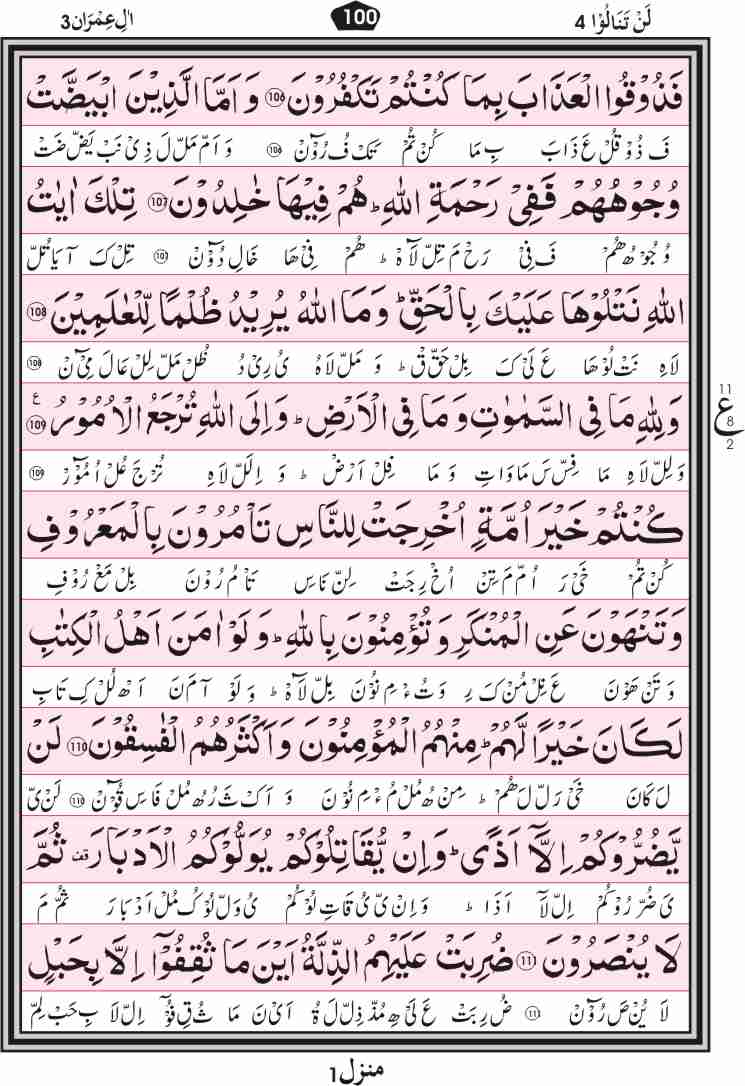 لَنْ تَنَالُوْا 4
100
اٰلِ عِمْرَان 3
فَذُوْقُوا الْعَذَابَ بِمَا كُنْتُمْ تَكْفُرُوْنَ ۝106 وَ اَمَّا الَّذِيْنَ ابْيَضَّتْ
فَ ذُوْقُلْ عَ ذَابَ بِ مَا كُنْ تُمْ تَكْ فُ رُوْٓنْ ۝106 وَ اَمّ مَلّ لَ ذِىْ نَبْ يَضّ ضَتْ
وُجُوْهُهُمْ فَفِيْ رَحْمَةِ اللّٰهِ ؕ هُمْ فِيْهَا خٰلِدُوْنَ ۝107 تِلْكَ اٰيٰتُ
وُ جُوْ هُ هُمْ فَ فِىْ رَحْ مَ تِلّ لَاهْ ؕ هُمْ فِىْ هَا خَالِ دُوْٓنْ ۝107 تِلْ كَ آ يَا تُلّ
اللّٰهِ نَتْلُوْهَا عَلَيْكَ بِالْحَقِّ ؕ وَمَا اللّٰهُ يُرِيْدُ ظُلْمًا لِّلْعٰلَمِيْنَ ۝108
لَاهِ نَتْ لُوْ هَا عَ لَىْ كَ بِلْ حَقّ قْ ؕ وَ مَلّ لَاهُ يُ رِىْ دُ ظُلْ مَلّ لِلْ عَالَ مِىْٓنْ ۝108
وَلِلّٰهِ مَا فِي السَّمٰوٰتِ وَ مَا فِي الْاَرْضِ ؕ وَ اِلَى اللّٰهِ تُرْجَعُ الْاُمُوْرُ ۝109 ع
وَ لِلّ لَاهِ مَا فِسّ سَ مَا وَاتِ وَ مَا فِلْ اَرْضْ ؕ وَ اِلَلّ لَاهِ تُرْ جَ عُلْ اُ مُوْٓرْ ۝109
11
ع
8
2
كُنْتُمْ خَيْرَ اُمَّةٍ اُخْرِجَتْ لِلنَّاسِ تَاْمُرُوْنَ بِالْمَعْرُوْفِ
كُنْ تُمْ خَىْ رَ اُمّ مَ تِنْ اُخْ رِ جَتْ لِنّ نَاسِ تَاْ مُ رُوْ نَ بِلْ مَعْ رُوْفِ
وَ تَنْهَوْنَ عَنِ الْمُنْكَرِ وَ تُؤْمِنُوْنَ بِاللّٰهِ ؕ وَ لَوْ اٰمَنَ اَهْلُ الْكِتٰبِ
وَ تَنْ هَوْنَ عَ نِلْ مُنْ كَ رِ وَ تُ ءْ مِ نُوْنَ بِلّ لَاهْ ؕ وَ لَوْ آ مَ نَ اَهْ لُلْ كِ تَابِ
لَكَانَ خَيْرًا لَّهُمْ ؕ مِنْهُمُ الْمُؤْمِنُوْنَ وَ اَكْثَرُهُمُ الْفٰسِقُوْنَ ۝110 لَنْ
لَ كَانَ خَىْ رَلّ لَ هُمْ ؕ مِنْ هُ مُلْ مُ ءْ مِ نُوْنَ وَ اَكْ ثَ رُ هُ مُلْ فَاسِ قُوْٓنْ ۝110 لَنْ ىّ
يَّضُرُّوْكُمْ اِلَّاۤ اَذًى ؕ وَ اِنْ يُّقَاتِلُوْكُمْ يُوَلُّوْكُمُ الْاَدْبَارَ ࣞ قف ثُمَّ
يَ ضُرّ رُوْكُمْ اِلّ لَآ اَذَا ؕ وَ اِنْ ىّ يُ قَاتِ لُوْكُمْ يُ وَلّ لُوْكُ مُلْ اَدْ بَارَ ثُمّ مَ
لَا يُنْصَرُوْنَ ۝111 ضُرِبَتْ عَلَيْهِمُ الذِّلَّةُ اَيْنَ مَا ثُقِفُوْۤا اِلَّا بِحَبْلٍ
لَا يُنْ صَ رُوْٓنْ ۝111 ضُ رِ بَتْ عَ لَىْ هِ مُذّ ذِلّ لَ ةُ اَىْ نَ مَا ثُ قِ فُوْٓ اِلّ لَا بِ حَبْ لِمّ
منزل 1